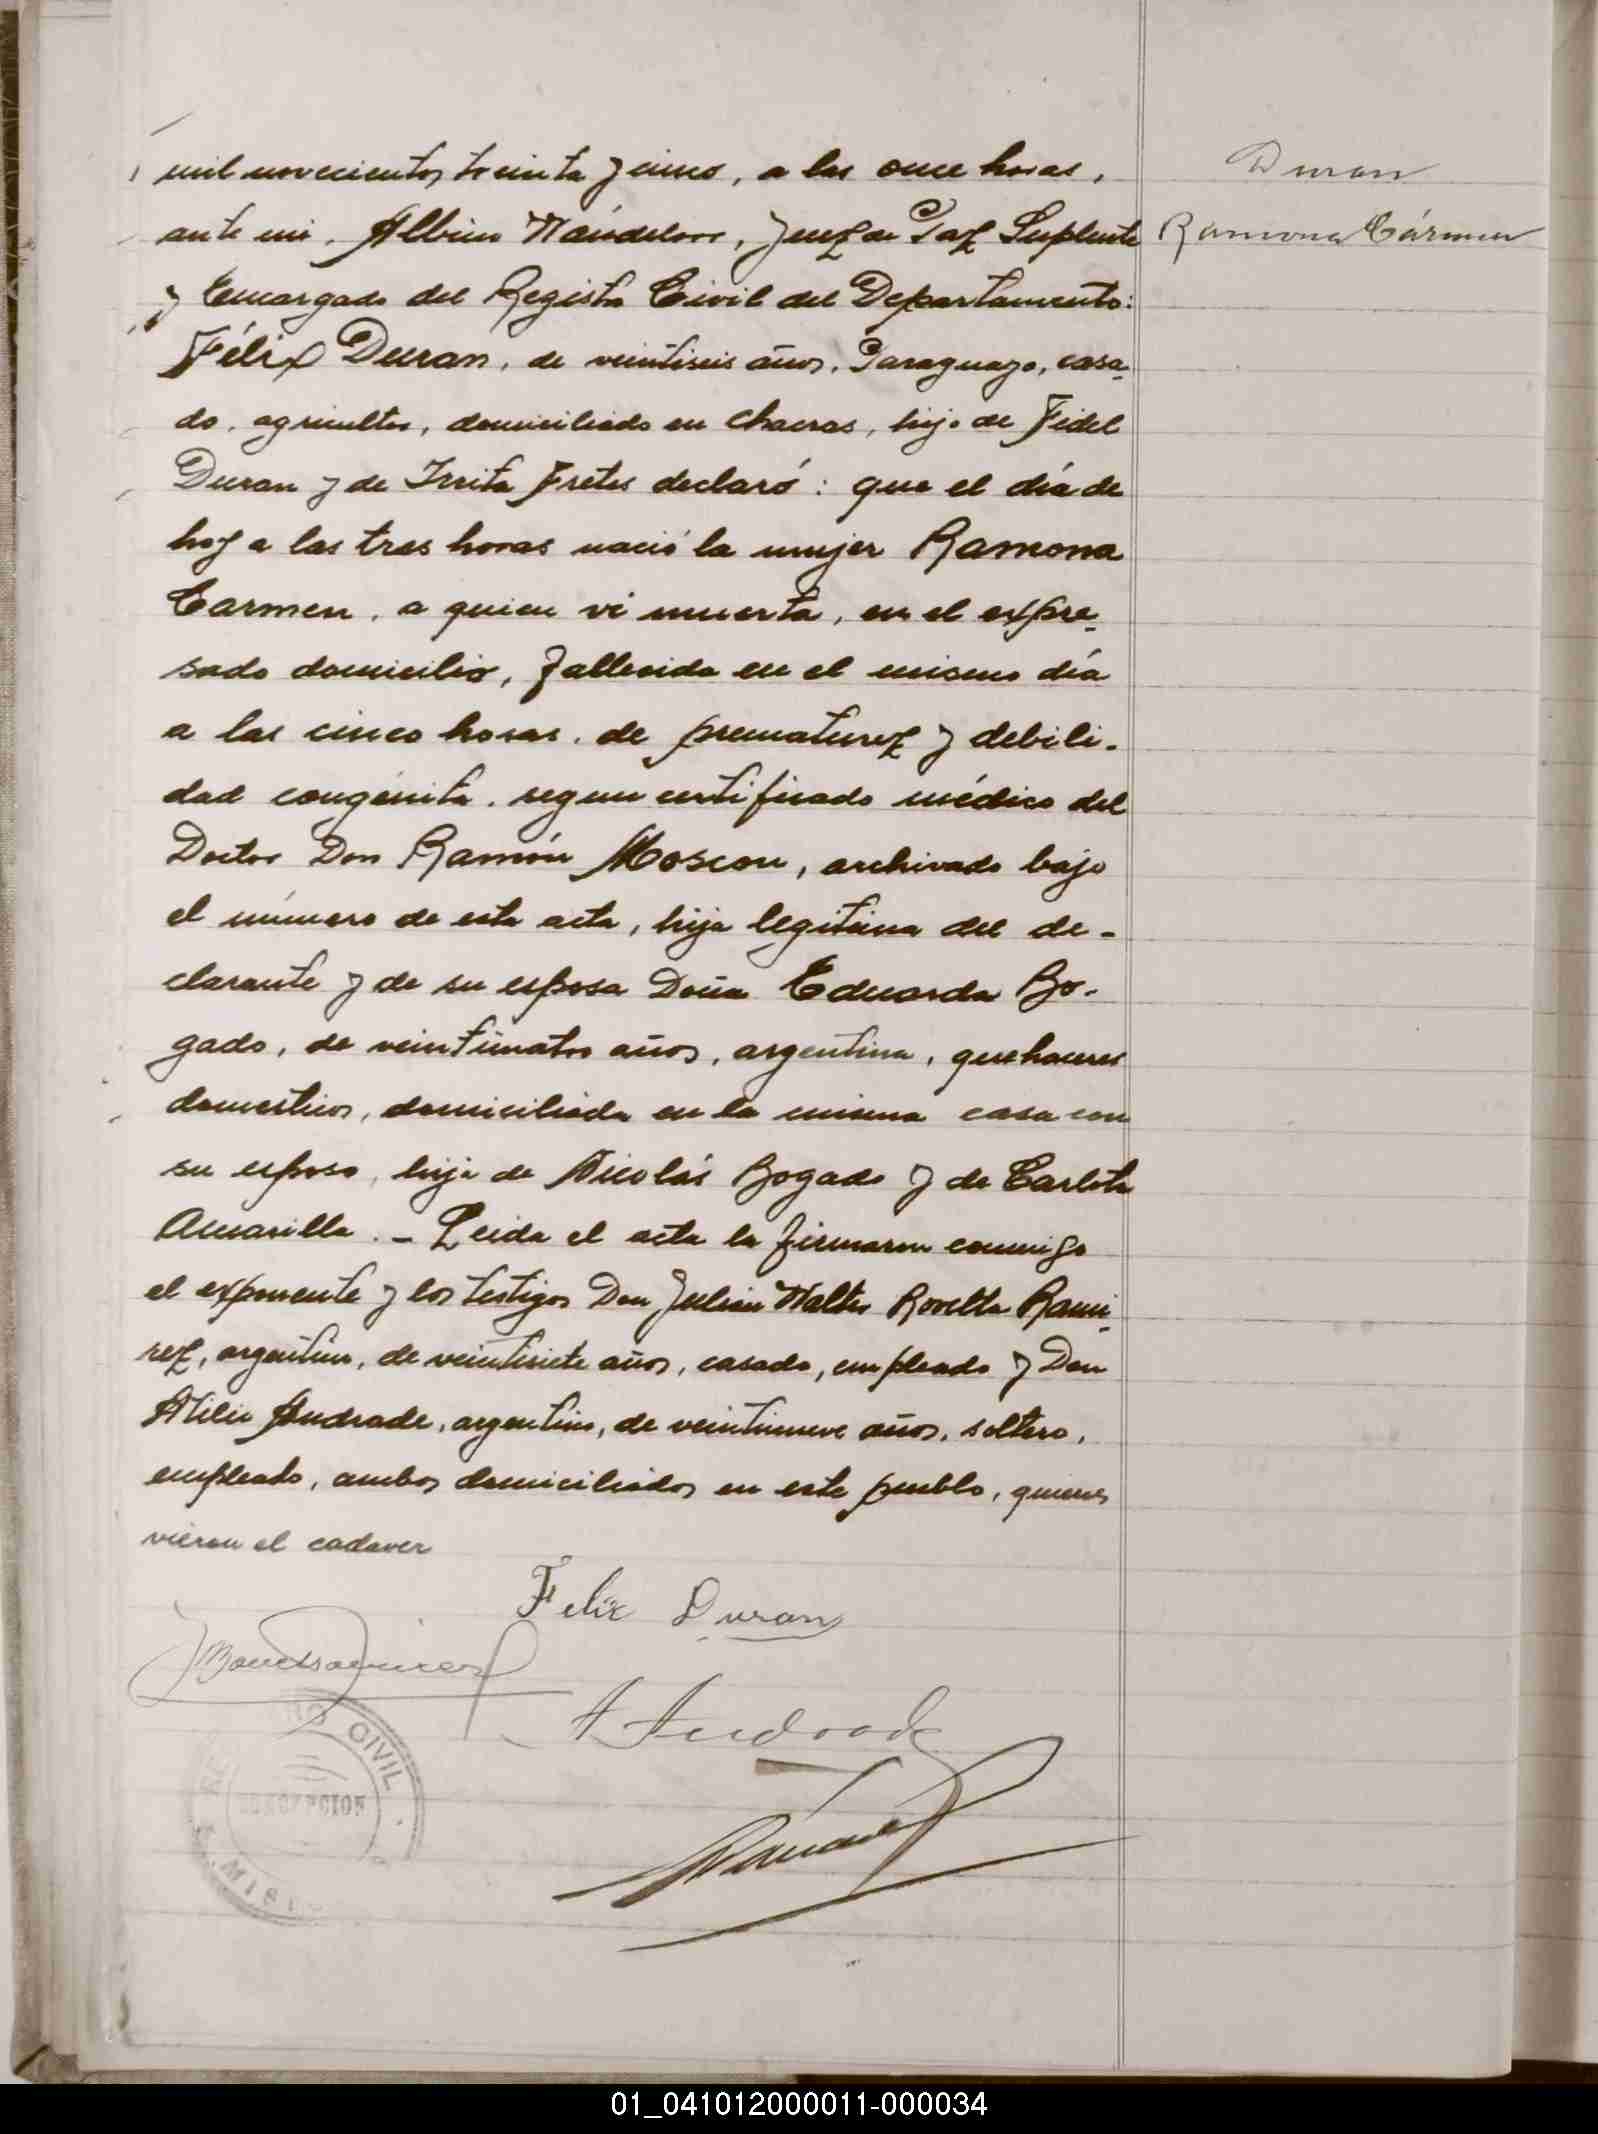 mil novecientos treinta y cinco, a las once horas,
ante mi, Albino, Juez de Paz Suplente
y Encargado del Registro Civil del Departamento:
Félix Duran, de veintiseis años, Paraguayo, casa-
do, agricultor, domiciliado en chacras, hijo de Fidel
Duran y de Fretes declaró: que el día de
hoy a las tres horas nació la mujer Ramona
Carmen, a quien vi muerta, en el expre-
sado domicilio, fallecida en el mismo día
a las cinco horas, de prematurez y debili-
dad congénita, segun certificado médico del
Doctor Don Ramón Moscou, archivado bajo
el número de esta acta, hija legitima del de-
clarante y de su esposa Doña Eduarda Bo-
gado, de veinticuatro años, argentina, quehaceres
domesticos, domiciliada en la misma casa con
su esposo, hija de Nicolás Bogado y de Carlota
Amarilla. - Leida el acta la firmaron conmigo
el exponente y los testigos Don Julián Walter Rovella Rami-
rez, argentino, de veintisiete años, casado, empleado y Don
Atilio Andrade, argentino, de veintinueve años, soltero,
empleado, ambos domiciliados en este pueblo, quienes
vieron el cadaver
Felix Duran
A Andrade
CIVIL
CONCEPCION
Duran
Ramona Cármen
01_041012000011-000034